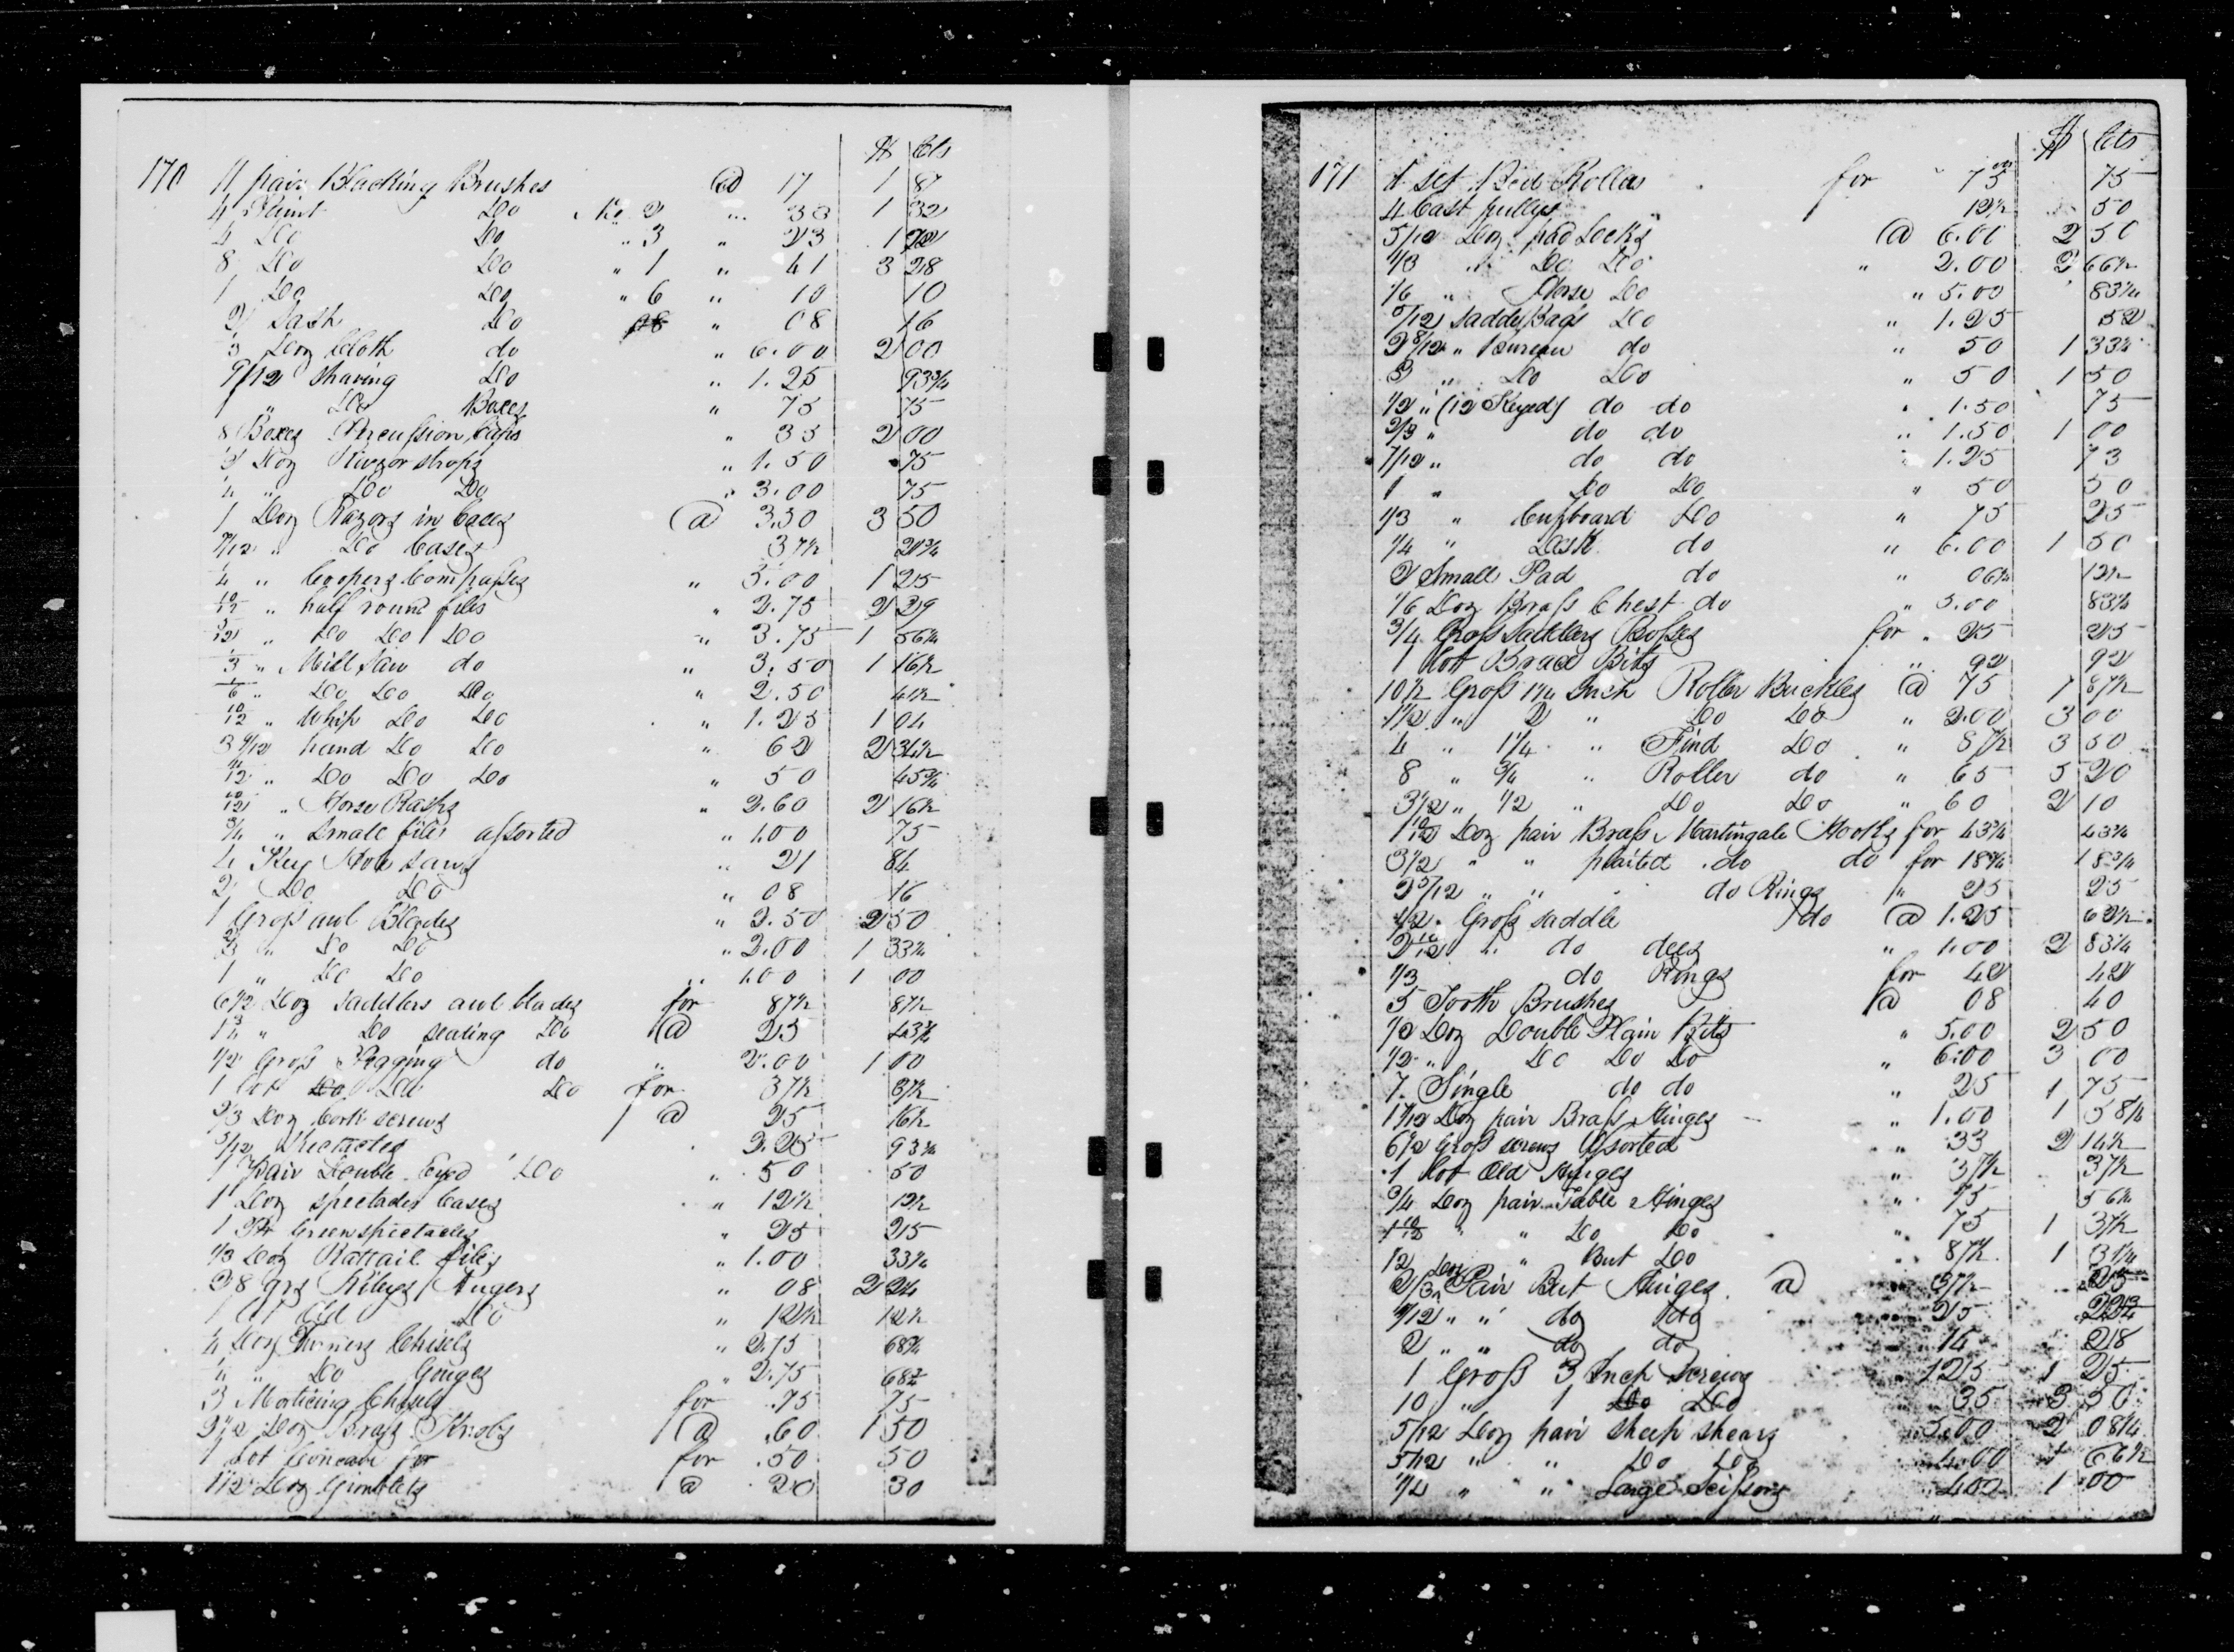 $ Cts
170 11 pair Blacking Brushes @ 17 1 87
4 Paint Do No 2 " 33 1 32
4 Do Do " 3 " 23 92
8 Do Do " 1 " 41 3 28
1 Do Do " 6 " 10 10
2 Sash Do " 08 16
1/3 Doz Cloth do " 6.00 2 00
9/12 Shaving Do " 1.25 93 3/4
1 " Do Boxes " 75 75
8 Boxes Percussion Caps " 25 2 00
1/2 Doz Rivzor Strops " 1.50 75
1/4 " Do Do " 3.00 75
1 Doz Razors in Cases @ 3.50 3 50
7/12 " Do Cases 37 1/2 21 3/4
1/4 " Coopers Compasses " 5.00 1 25
10/12 " half round files " 2.75 2 29
5/12 " Do Do Do " 3.75 1 56 1/4
1/3 " Mill Saw do " 3.50 1 16 1/2
1/6 " Do Do Do " 2.50 41 1/2
10/12 " Whip Do Do " 1.25 1 04
3 9/12 hand Do Do " 62 2 34 1/2
11/12 " Do Do Do " 50 45 3/4
10/12 " Horse Rasps " 2.60 2 16 1/2
3/4 " Small files assorted " 1.00 75
4 Key Hole Saws " 21 84
2 Do Do " 08 16
1 Gross awl Blades " 2.50 2 50
2/3 " Do Do " 2.00 1 33 1/4
1 " Do Do " 1.00 1 00
6 1/2 Doz Saddlers awl blades for 87 1/2 87 1/2
1 3/4 " Do seating Do @ 25 43 3/4
1/2 Gross Pegging do " 2.00 1 00
1 Lot Do Do for 37 1/2 37 1/2
2/3 Doz Cork screws @ 25 16 1/2
5/12 Spectacles 2.25 93 3/4
1 Pair Double Eyed Do " 50 50
1 Doz spectacles Cases " 12 1/2 12 1/2
1 Pr Green spectacles " 25 25
1/3 Doz Rattail files " 1.00 33 1/4
28 qrs Rileys Augers " 08 2 24
1 Lot Old Do " 12 1/2 12 1/2
1/4 Doz Turners Chisels " 2.75 68 3/4
1/4 " Do Gouges " 2.75 68 3/4
3 Morticing Chisels for .75 75
2 1/2 Doz Brass Knobs @ .60 1 50
1 Lot for .50 50
1 1/2 Doz Gimblets @ 20 30
$ Cts
171 1 set Bed Rollers for 75 75
4 Cast pullys 12 1/2 50
5/12 Doz pad Locks @ 6.00 2 50
1/3 " Do Do " 2.00 2 66 1/2
1/6 " Horse Do " 5.00 83 1/4
5/12 Saddle Bags Do " 1.25 52
2 8/12 " Bureau do " 50 1 33 1/4
3 " Do Do " 50 1 50
1/2 " (12 Keyed) do do " 1.50 75
2/3 " do do " 1.50 1 00
7/12 " do do " 1.25 73
1 " Do Do " 50 50
1/3 " Cupboard Do " 75 25
1/4 " Desk do " 6.00 1 50
2 Small Pad do " 06 1/4 12 1/2
1/6 Doz Brass Chest do " 5.00 83 1/4
3/4 Gross Saddlers Bosses for 25 25
1 Lot Brace Bits " 92 92
10 1/2 Gross 1 1/4 Inch Roller Buckles @ 75 7 87 1/2
1 1/2 " 2 " Do Do " 2.00 3 00
4 " 1 1/4 " Tind Do " 87 1/2 3 50
8 " 3/4 " Roller do " 65 5 20
3 1/2 " 1/2 " Do Do " 60 2 10
1 10/12 Doz pair Brass Martingale Hooks for 43 3/4 43 3/4
3 1/2 " " plaited do do for 18 3/4 18 3/4
2 5/12 " " do Rings " 25 25
1/2 Gross Saddle do @ 1.25 62 1/2
2 10/12 " do dees " 1.00 2 83 1/4
1/3 do Rings for 42 42
5 Tooth Brushes @ 08 40
1/2 Doz Double Plain Bits " 5.00 2 50
1/2 " Do Do Do " 6.00 3 00
7 Single do do " 25 1 75
1 7/12 Doz pair Brass Hinges " 1.00 1 58 1/4
6 1/2 Gross screws Assorted " 33 2 14 1/2
1 Lot Old Hinges " 37 1/2 37 1/2
3/4 Doz pair Table Hinges " 75 56 1/4
1 10/12 " " Do Do " 75 1 37 1/2
" But Do " 87 1/2 1 31 1/4
2/3 Doz Pair But Hinges @ 37 1/2 25
" " do do 25
2 " " do do 14 28
1 Gross 3 Inch Screws 125 1 25
10 " 1 Do Do 35 3 50
5/12 Doz pair sheep shears 5.00 2 08 1/4
5/12 " " Do Do 4.00 1 66 1/2
1/4 " " Large Scissors 400 1 00